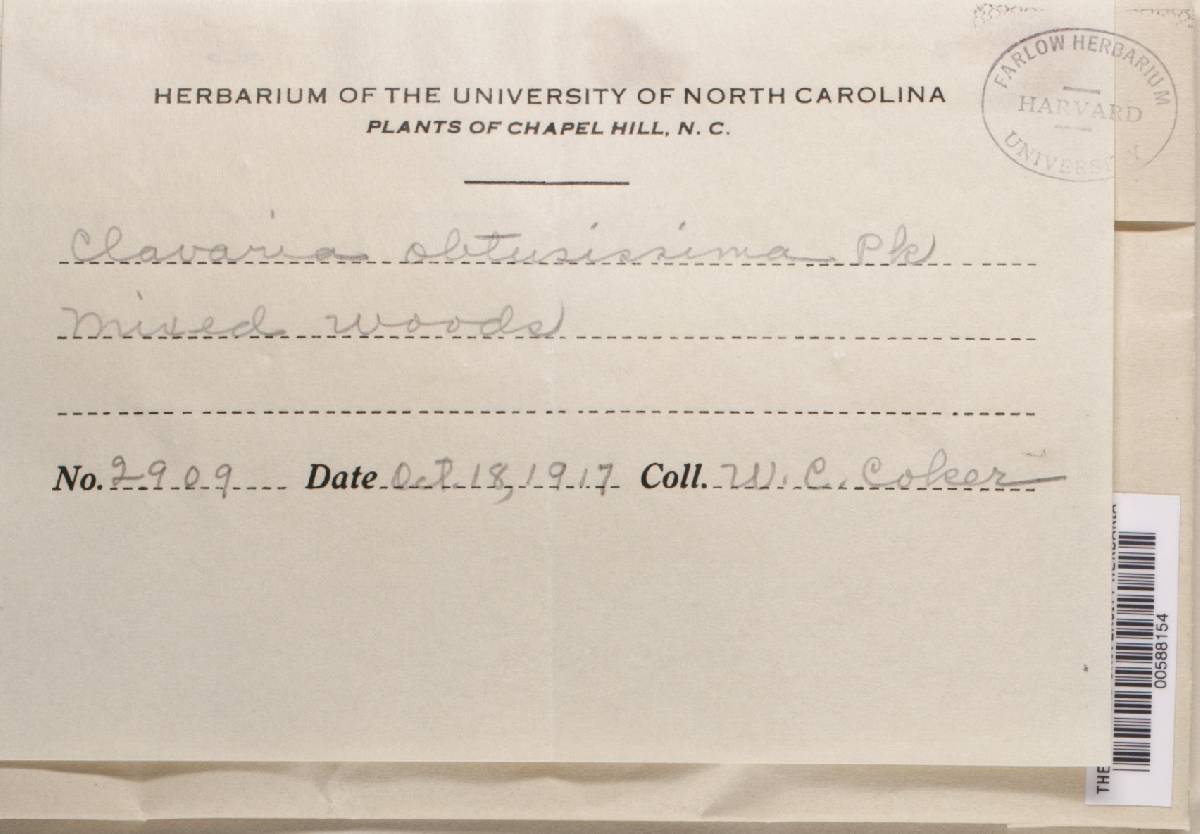 HERBARIUM OF THE UNIVERSITY OF NORTH CAROLINA
PLANTS OF CHAPEL HILL, N. C.
FARLOW HERBARIUM
HARVARD
UNIVERSITY
Clavaria obtusissima Pk
Mixed woods
No. 2909 Date Oct 18, 1917 Coll. W. C. Coker
THE
00588154